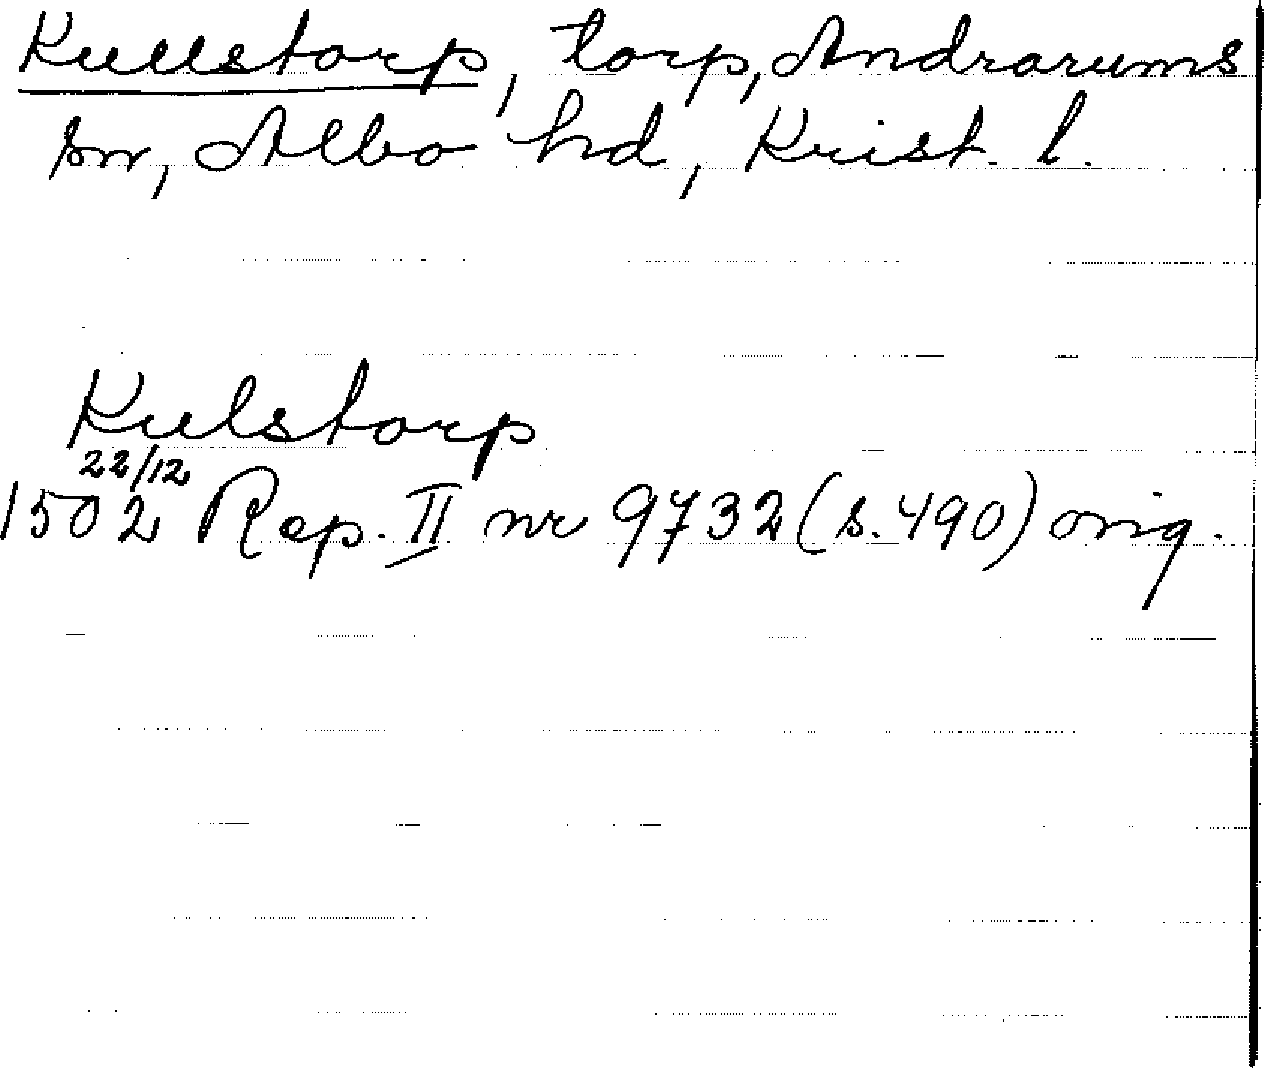 Kullstorp, torp, Andrarums
sn, Albo hd, Krist. l.
Kulstorp
22/12
1502 Rep. II nr 9732 (s. 490) orig.